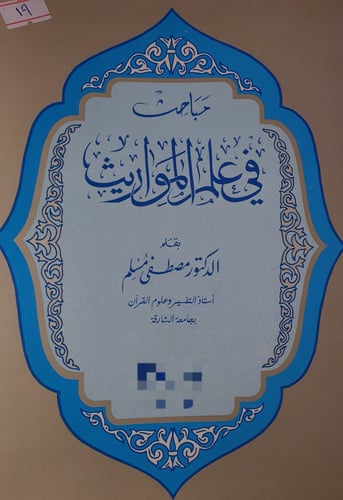 ١٩
مباحث
في علم المواريث
بقلم
الدكتور مصطفى مسلم
أستاذ التفسير وعلوم القرآن
بجامعة الشارقة